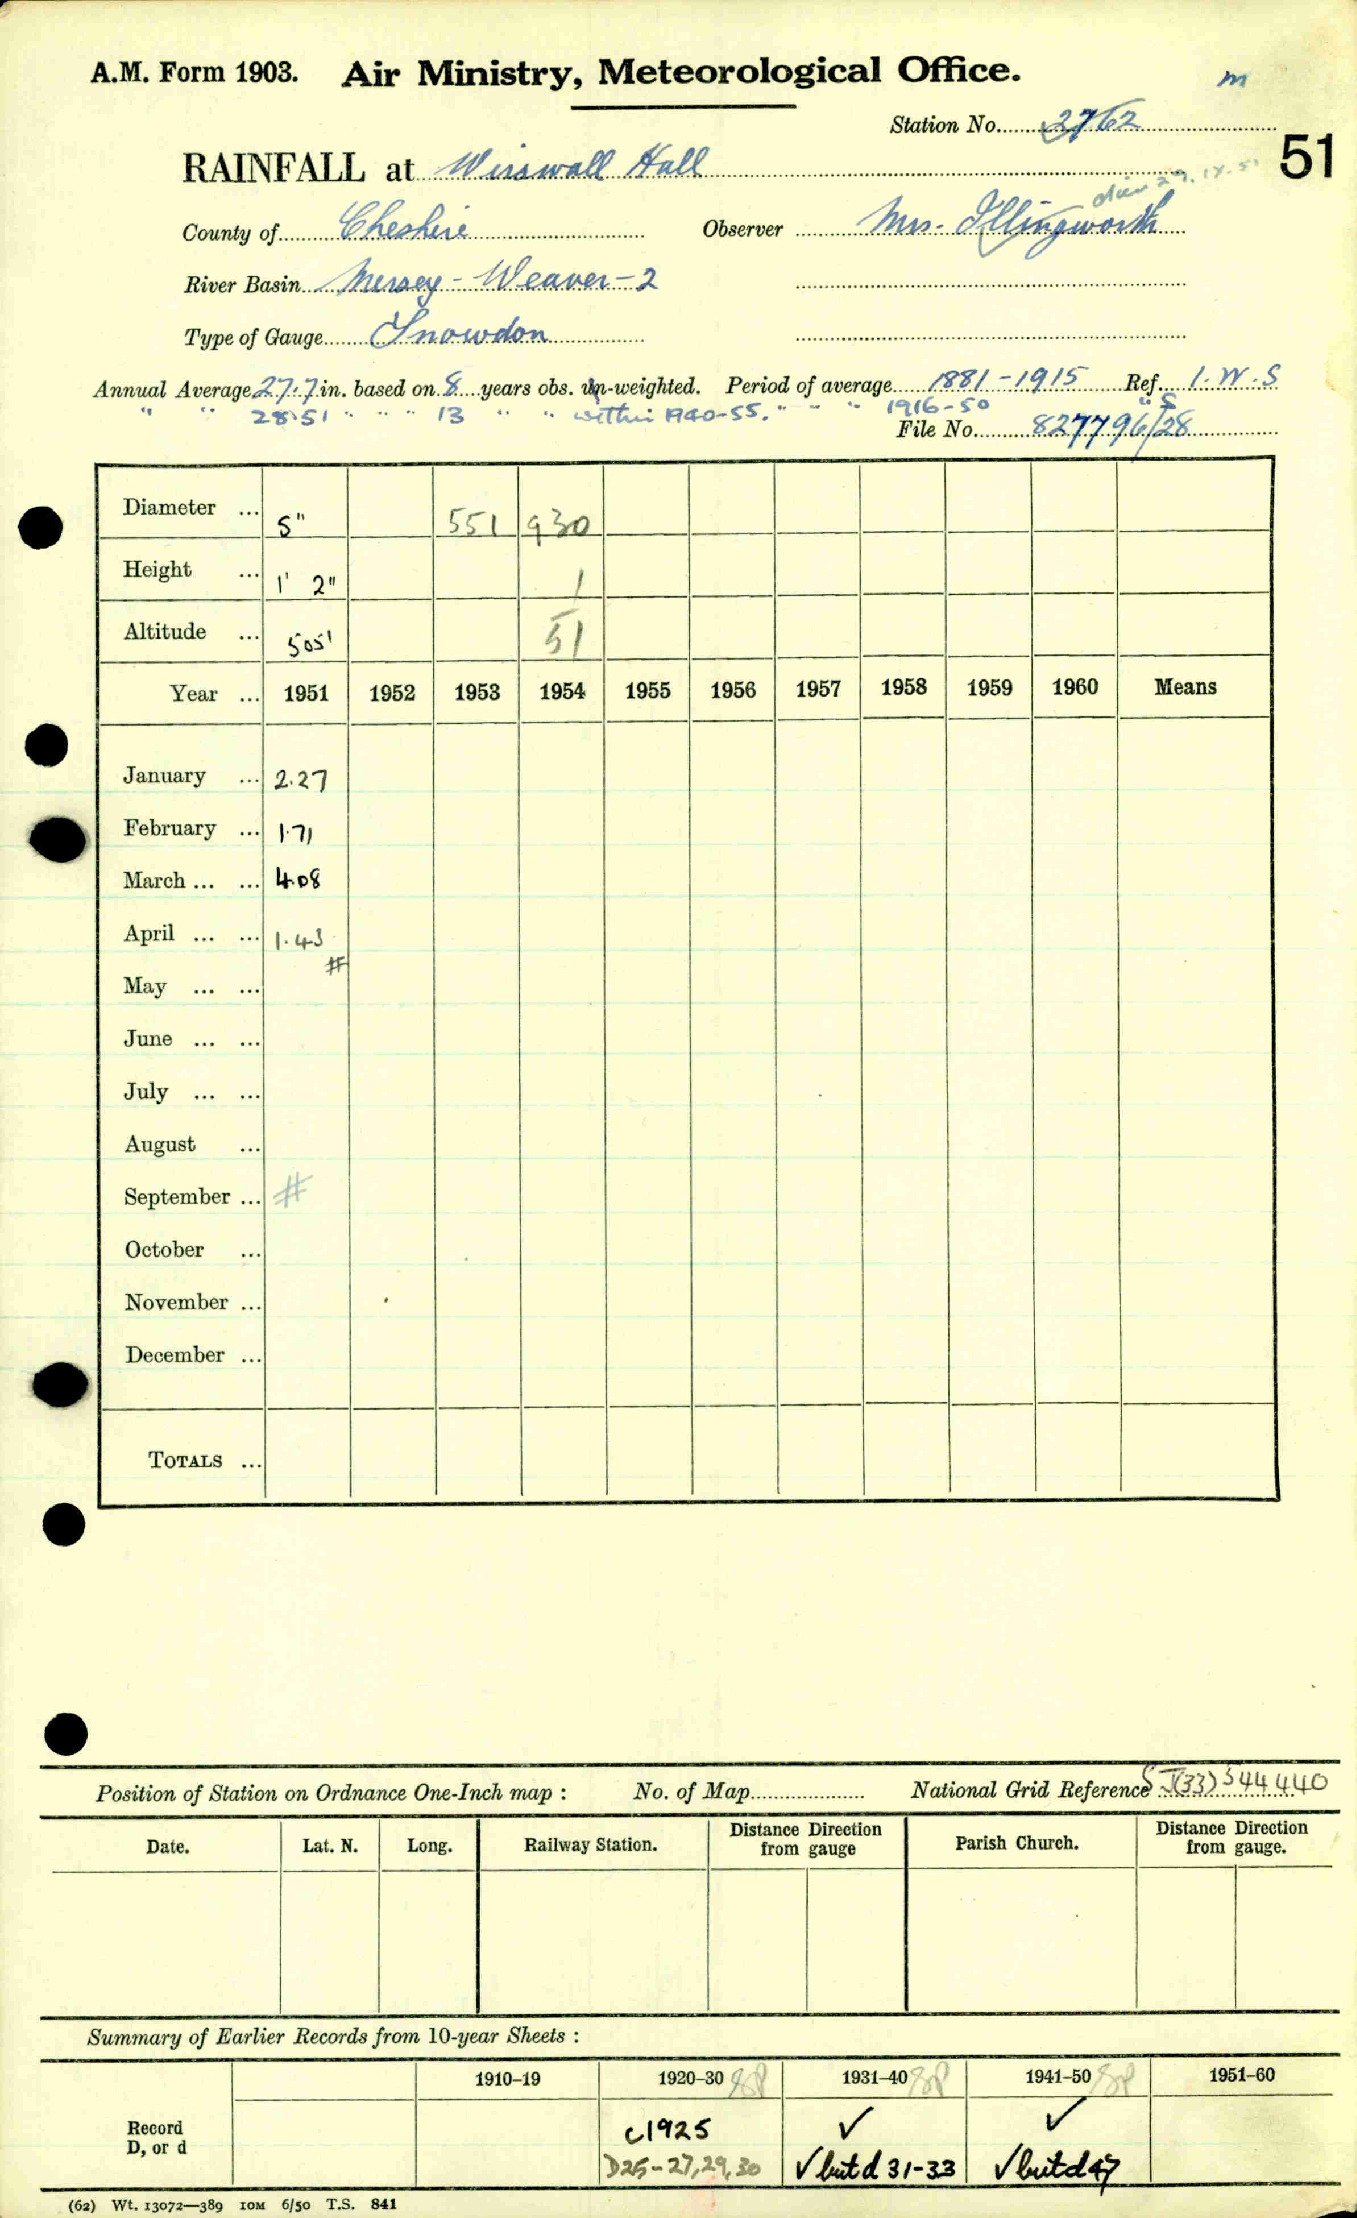 A.M. Form 1903. Air Ministry, Meteorological Office. m
Station No. 2762
51
RAINFALL at Wirswall Hall
died 29.IX.51
County of Cheshire Observer Mrs. Illingworth
River Basin Mersey - Weaver - 2
Type of Gauge Snowdon
Annual Average 27.7 in. based on 8 years obs. un-weighted. Period of average 1881-1915 Ref. I.W.S
" " 28.51 " " " 13 " " within 1940-55. " " " 1916-50 " S
File No. 827796/28
Diameter ... 5" 551 930
Height ... 1' 2" 1
Altitude ... 505' 51
Year ... 1951 1952 1953 1954 1955 1956 1957 1958 1959 1960 Means
January ... 2.27
February ... 1.71
March ... ... 4.08
April ... ... 1.43
#
May ... ...
June ... ...
July ... ...
August ...
September ... #
October ...
November ...
December ...
TOTALS ...
Position of Station on Ordnance One-Inch map : No. of Map National Grid Reference SJ(33) 544440
Date. Lat. N. Long. Railway Station. Distance from Direction gauge Parish Church. Distance from Direction gauge.
Summary of Earlier Records from 10-year Sheets :
1910-19 1920-30 1931-40 1941-50 1951-60
Record c1925 ✓ ✓
D, or d D25-27,29,30 ✓ but d 31-33 ✓ but d 47
(62) Wt. 13072—389 10M 6/50 T.S. 841